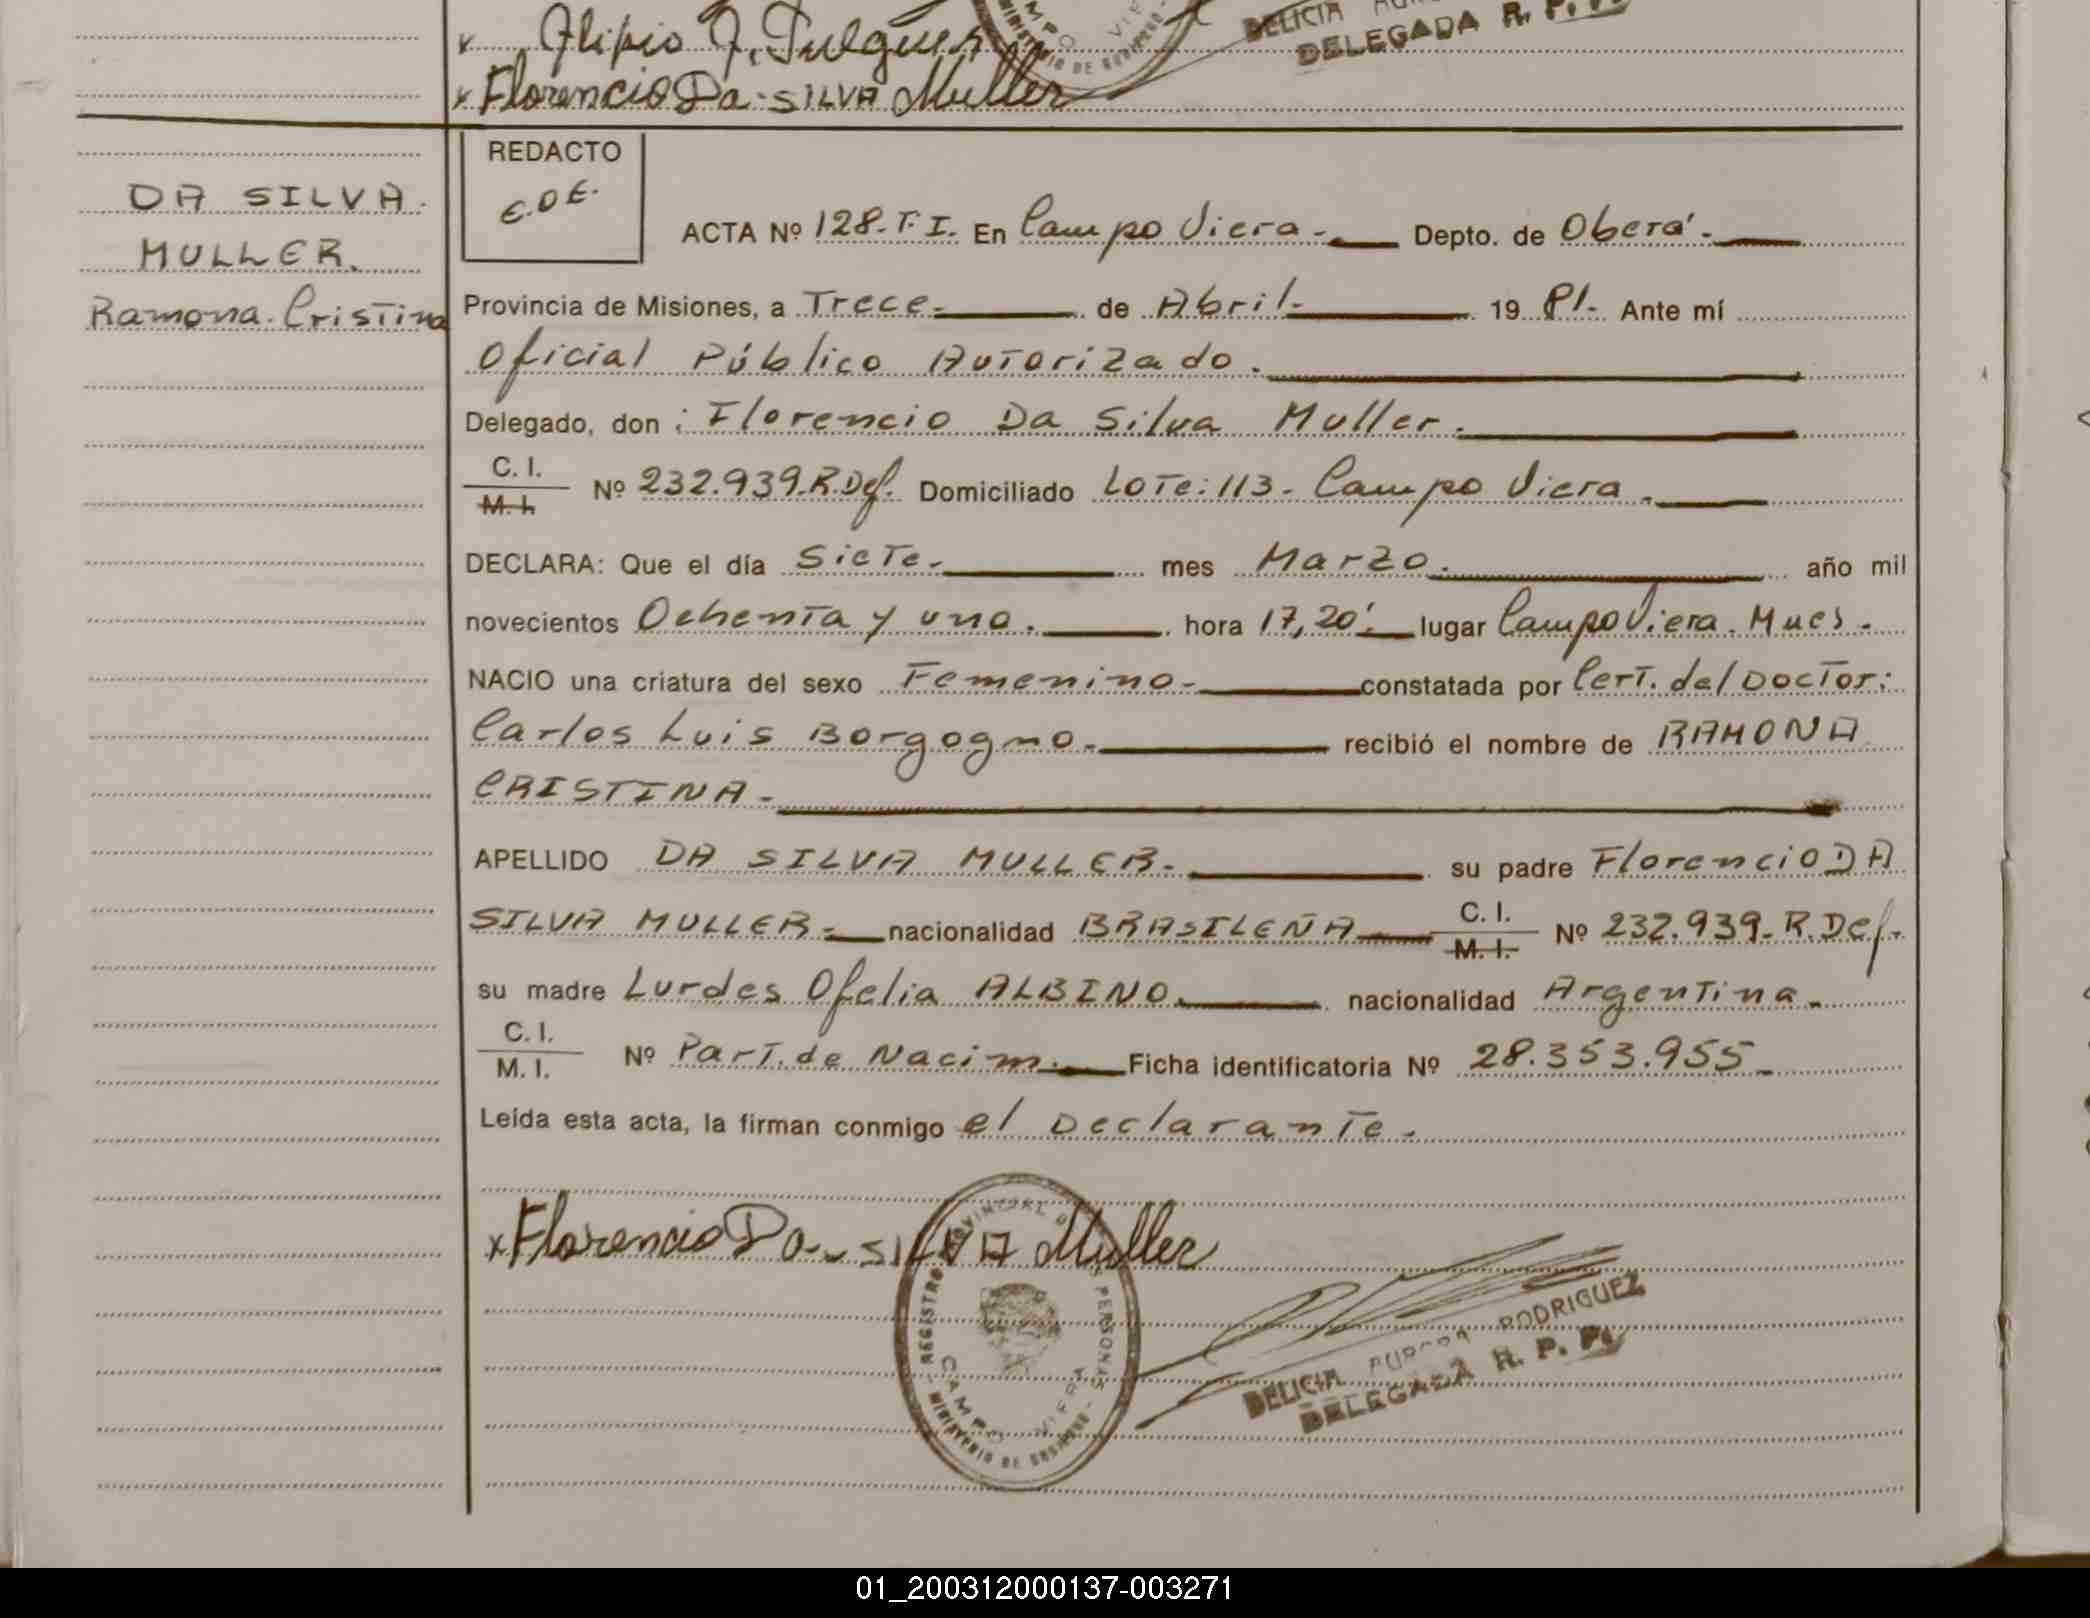 Florencio Da SILVA Muller
DELICIA
DELEGADA R. P.
REDACTO
E.D.E.
DA SILVA.
MULLER.
Ramona. Cristina
ACTA Nº 128. T. I. En Campo Viera.- Depto. de Oberá.-
Provincia de Misiones, a Trece- de Abril- 19 81- Ante mí
Oficial Público Autorizado.
Delegado, don : Florencio Da Silva Muller.
C. I.
M. I. Nº 232.939.R.Def. Domiciliado Lote: 113- Campo Viera.
DECLARA: Que el día Siete- mes Marzo. año mil
novecientos Ochenta y uno. hora 17,20' lugar Campo Viera. Mnes.
NACIO una criatura del sexo Femenino- constatada por Cert. del Doctor:
Carlos Luis Borgogno- recibió el nombre de RAMONA
CRISTINA-
APELLIDO DA SILVA MULLER- su padre Florencio DA
SILVA MULLER- nacionalidad BRASILEÑA C. I.
M. I. Nº 232.939- R.Def.
su madre Lurdes Ofelia ALBINO. nacionalidad Argentina-
C. I.
M. I. Nº Part. de Nacim. Ficha identificatoria Nº 28.353.955-
Leída esta acta, la firman conmigo el Declarante.
x Florencio Da SILVA Muller
REGISTRO PROVINCIAL DE LAS PERSONAS
CAMPO VIERA
MINISTERIO DE GOBIERNO
DELICIA AURORA RODRIGUEZ
DELEGADA R. P. P.
01_200312000137-003271